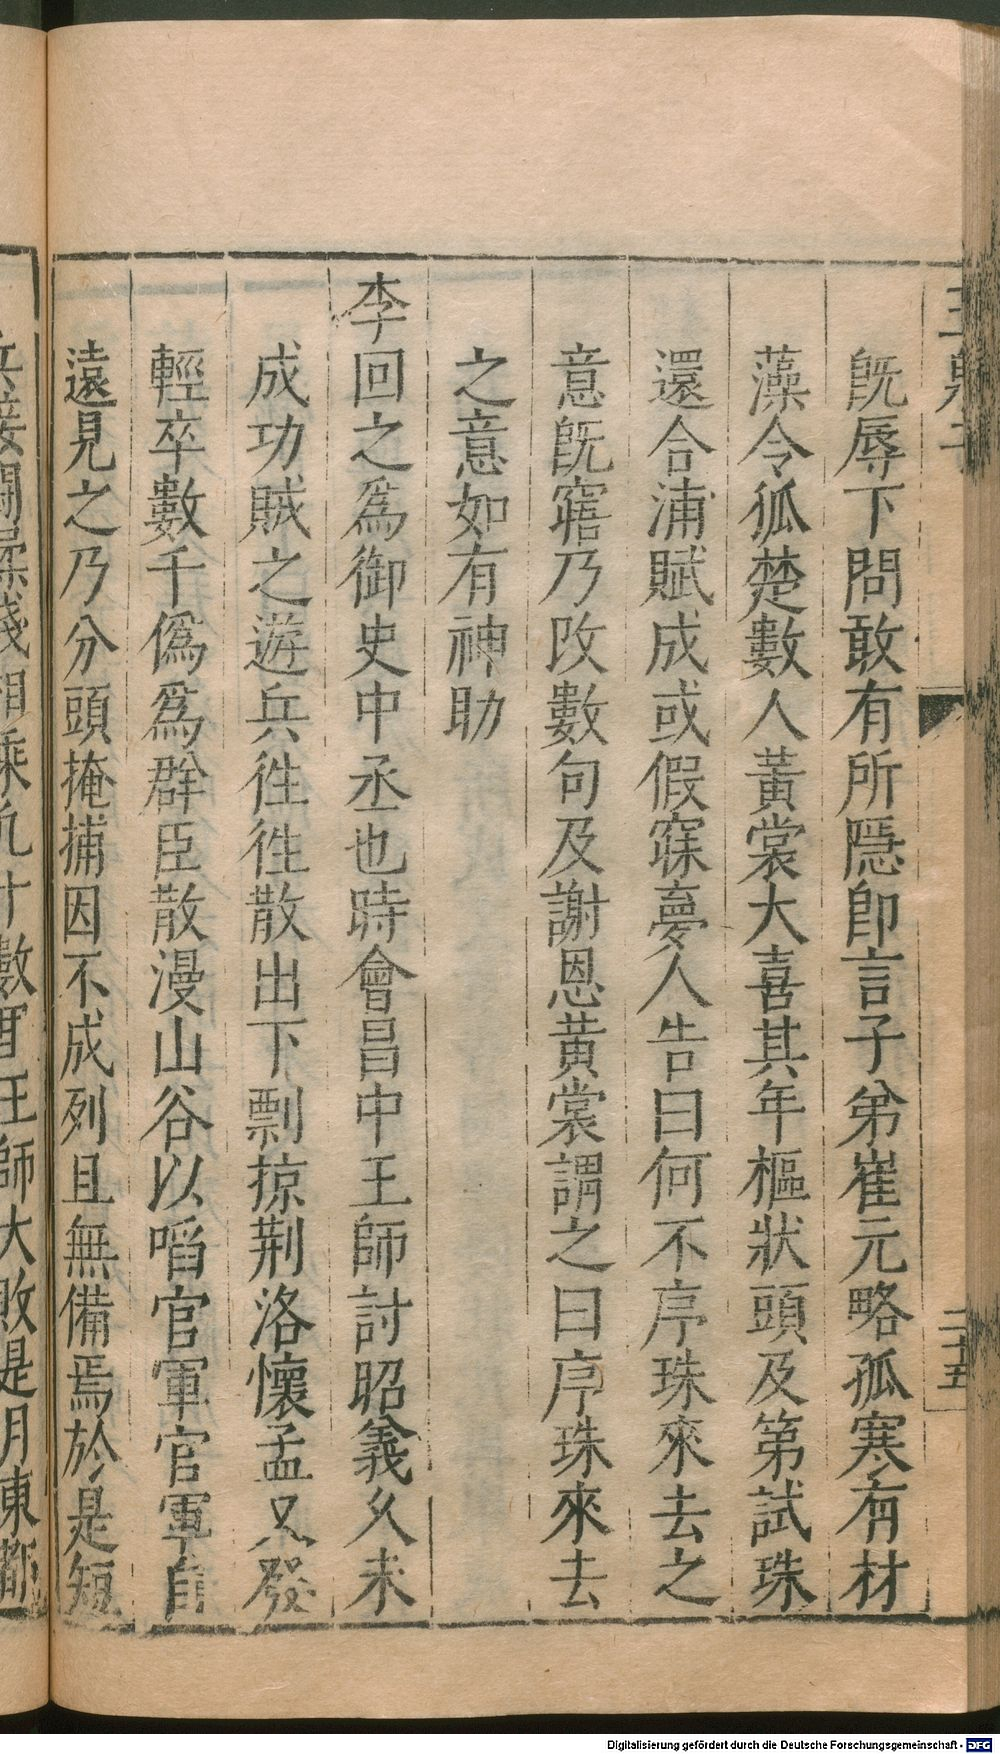 既辱下問敢有所隠即言子弟崔元略孤寒有材
藻令狐楚數人黃裳大喜其年樞狀頭及第試珠
還合浦賦成或假寐夢人告曰何不序珠來去之
意既寤乃改數句及謝恩黃裳謂之曰序珠來去
之意如有神助
李回之爲御史中丞也時會昌中王師討昭義久未
成功賊之遊兵徃徃散出下剽掠荆洛懷孟又發
輕卒數千僞爲群臣散漫山谷以啗官軍官軍自
遠見之乃分頭掩捕因不成列且無備焉於是短
兵接鬬蹂踐相乘凡十數里王師大敗是月東都
二十五
Digitalisierung gefördert durch die Deutsche Forschungsgemeinschaft - DFG